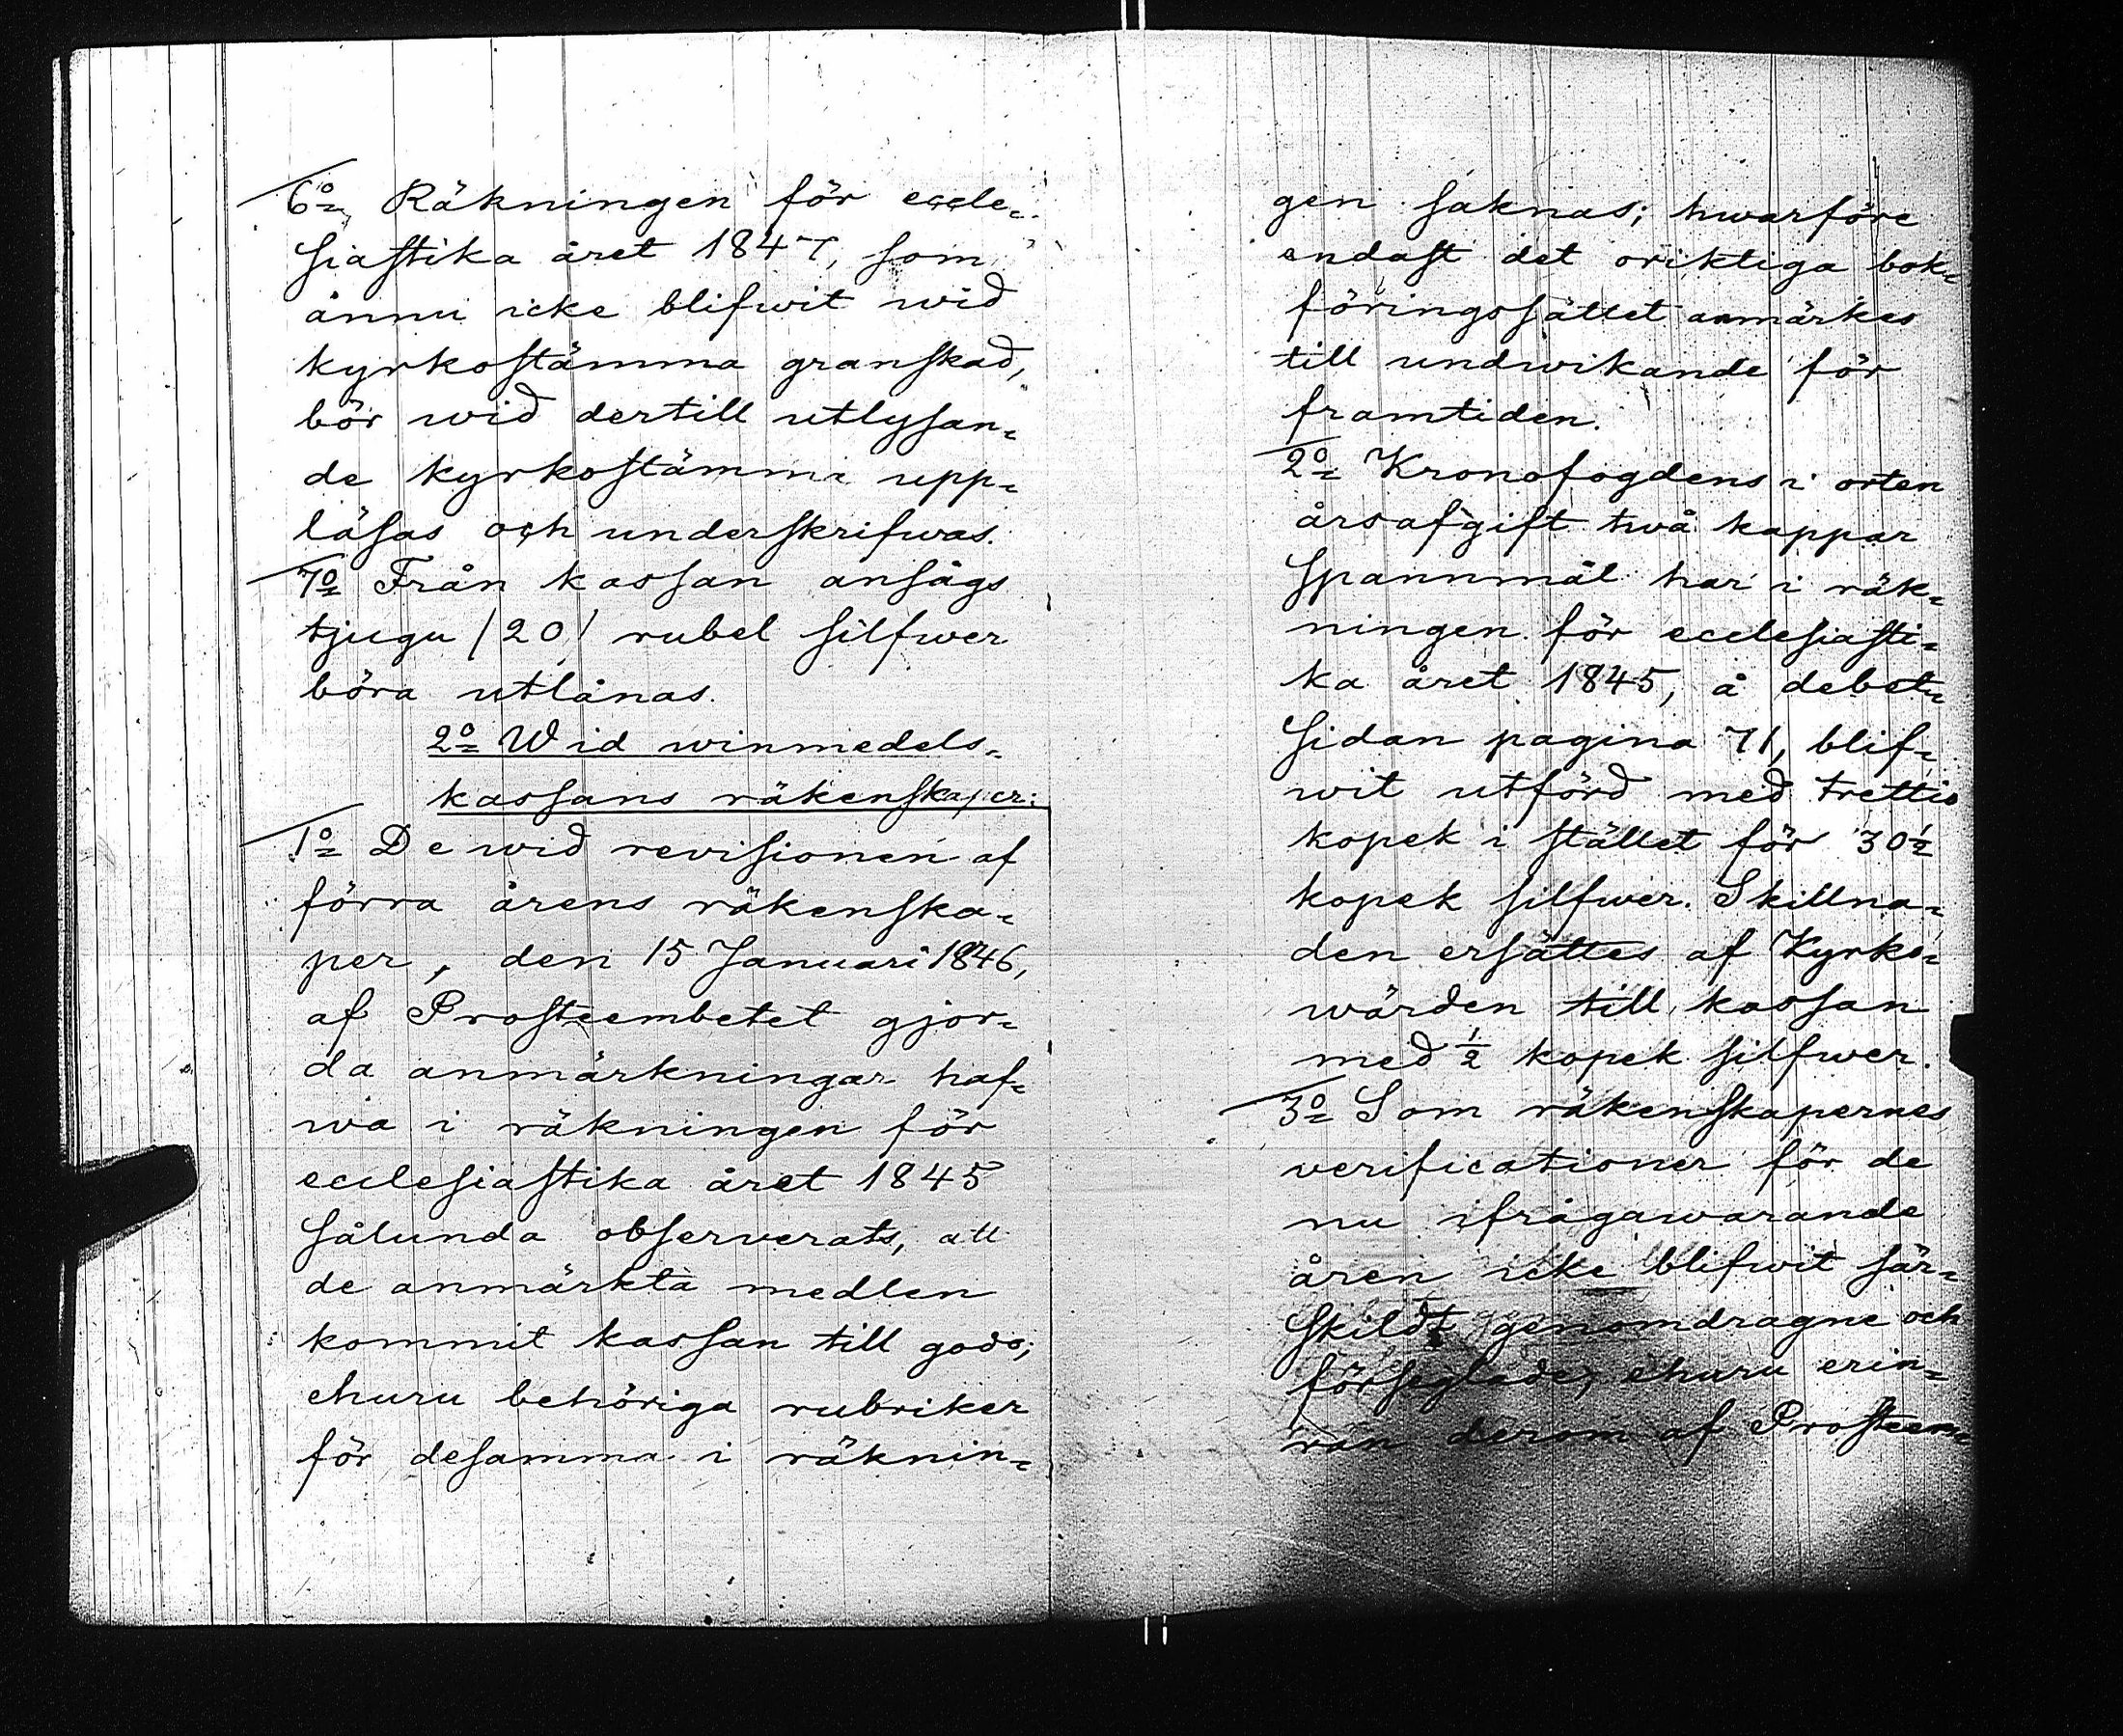 6o Räkningen för eccle=
siastika året 1847, som
ännu icke blifwit wid
kyrkostämma granskad,
bör wid dertill utlysan=
de kyrkostämma upp=
läsas och underskrifwas.
7o Från kassan ansågs
tjugu /20/ rubel silfwer
böra utlånas.
2o Wid winmedels=
kassans räkenskaper:
1o De wid revisionen af
förra årens räkenska=
per, den 15 Januari 1846,
af Prosteembetet gjor=
da anmärkningar haf=
wa i räkningen för
ecclesiastika året 1845
sålunda observerats, att
de anmärkta medlen
kommit kassan till godo;
ehuru behöriga rubriker
för desamma i räknin=
gen saknas; hwarföre
endast det oriktiga bok=
föringssättet anmärkes
till undwikande för
framtiden.
2o Kronofogdens i orten
årsafgift två kappar
Spannmål har i räk=
ningen för ecclesiasti=
ka året 1845, å debet=
sidan pagina 71, blif=
wit utförd med trettio
kopek i stället för 30½
kopek silfwer. Skillna=
den ersättes af Kyrko=
wärden till kassan
med ½ kopek silfwer.
3o Som räkenskapernes
verificationer för de
nu ifrågawarande
åren icke blifwit sär=
skildt genomdragne och
förseglade, ehuru erin=
ran derom af Prosteem=